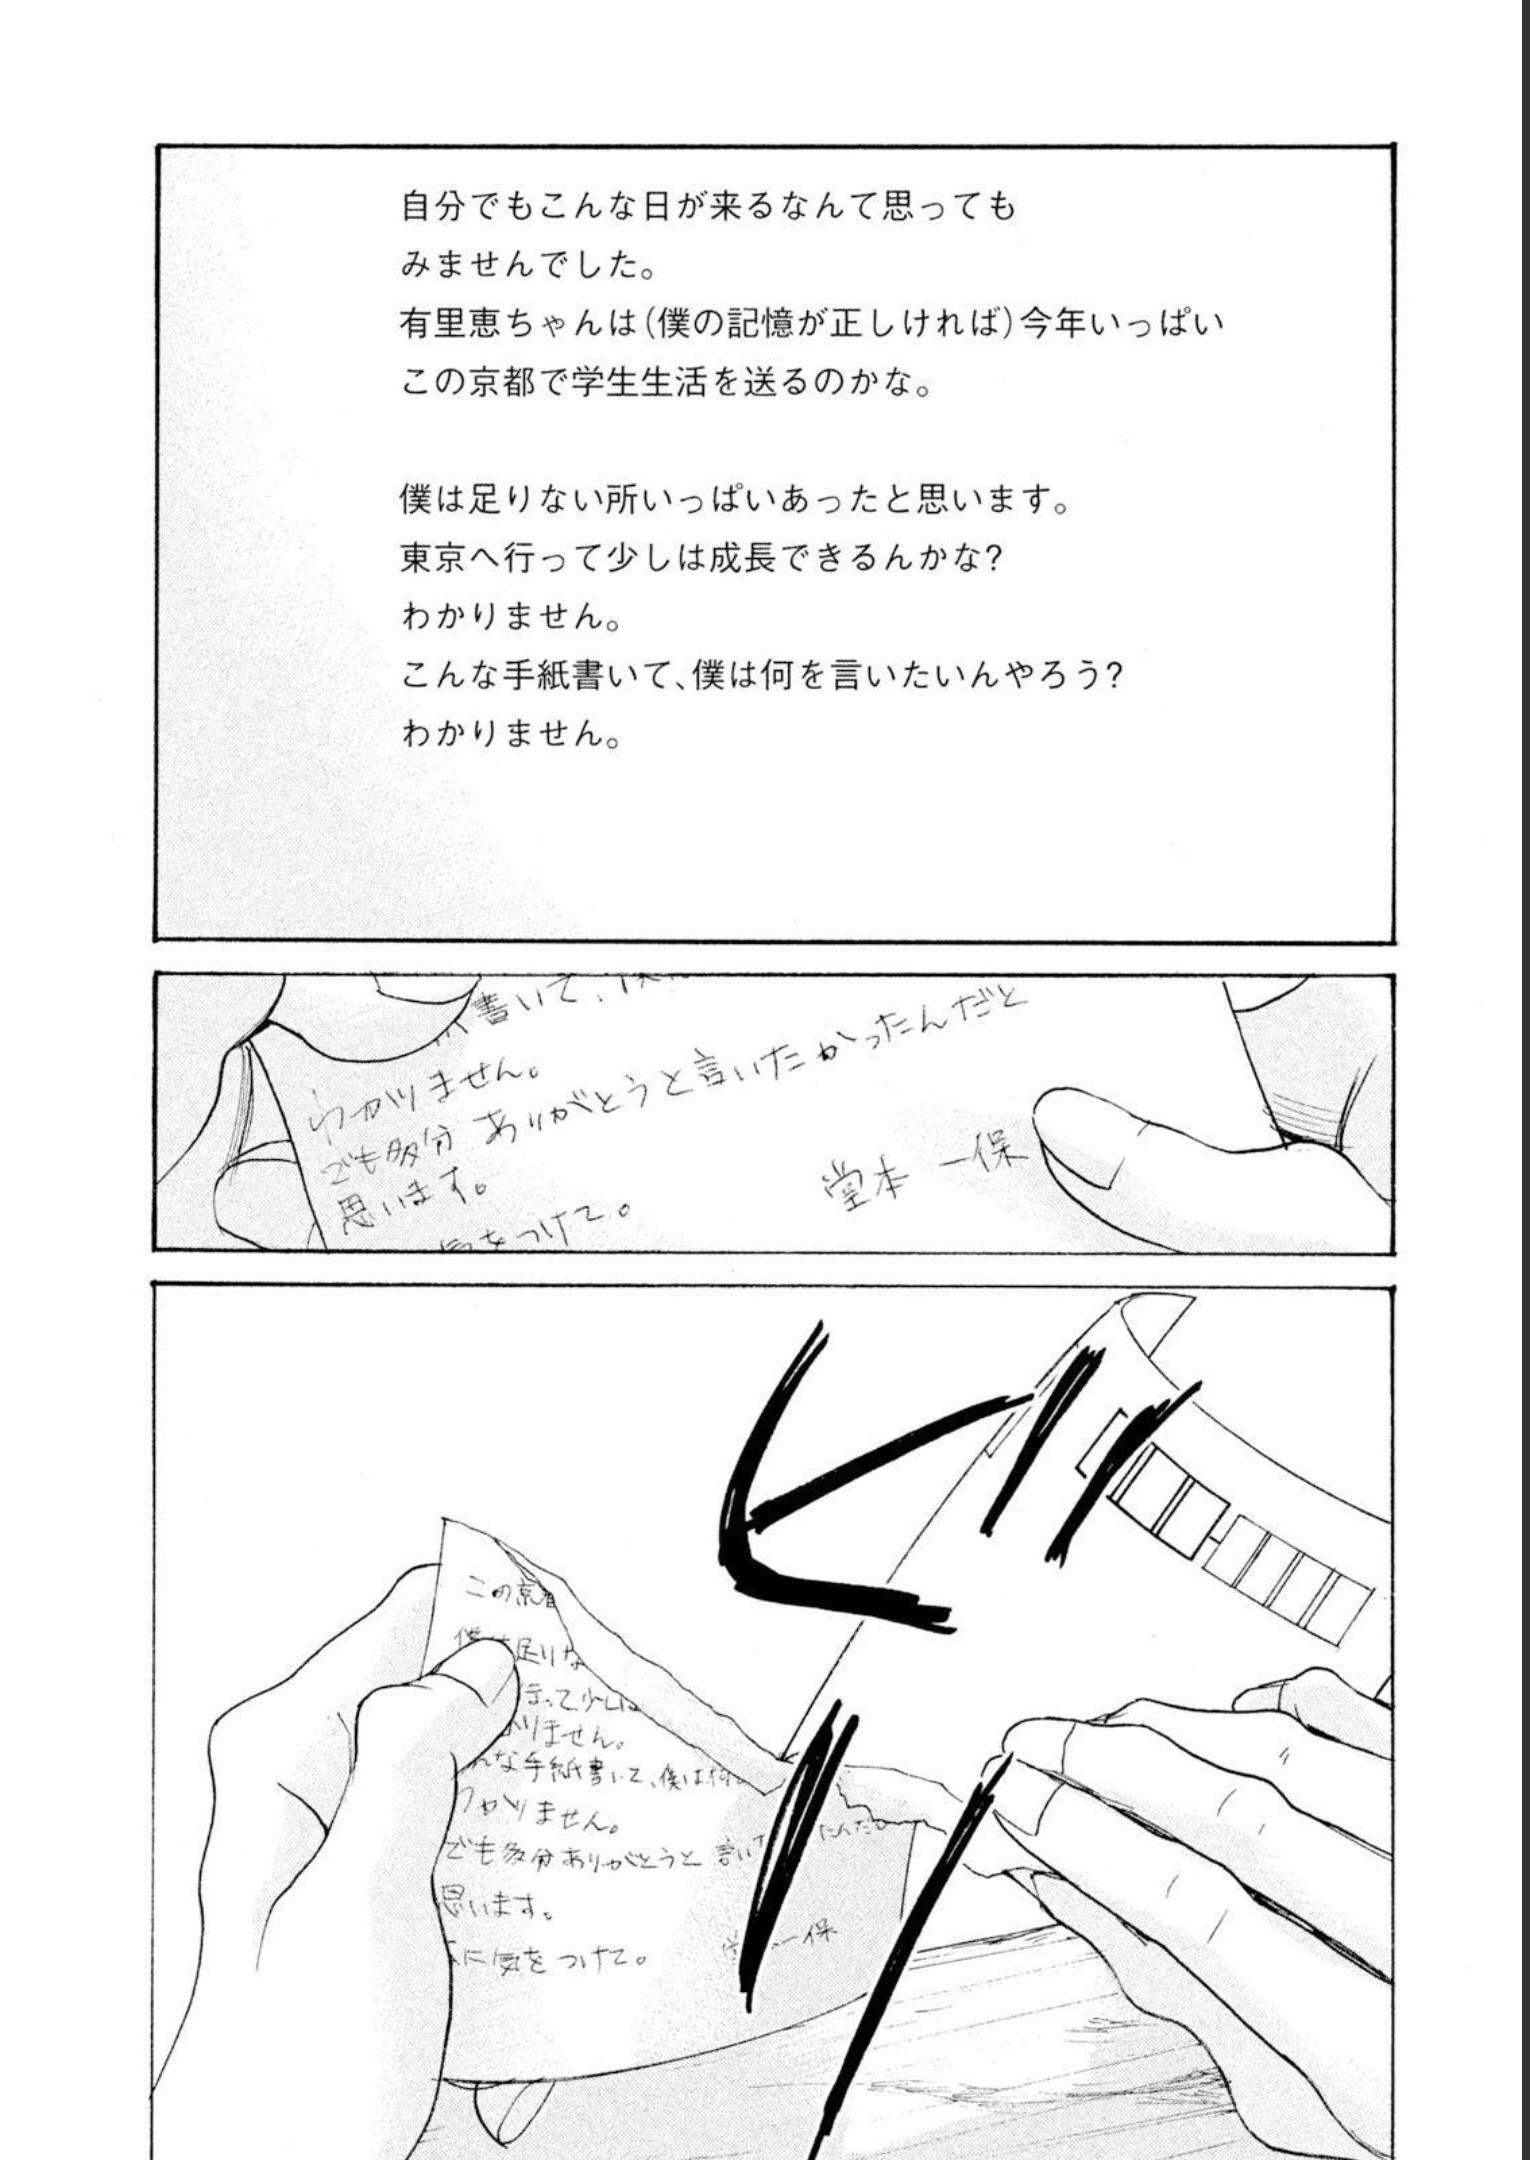 自分でもこんな日が来るなんて思っても
みませんでした。
有里恵ちゃんは(僕の記憶が正しければ)今年いっぱい
この京都で学生生活を送るのかな。
僕は足りない所いっぱいあったと思います。
東京へ行って少しは成長できるんかな?
わかりません。
こんな手紙書いて、僕は何を言いたいんやろう?
わかりません。
書いて、僕
わかりません。
でも多分 ありがとうと言いたかったんだと
思います。
気をつけて。
堂本 一保
ビリ
この京都
僕は足りな
行って少しは
かりません。
んな手紙書いて、僕は何
わかりません。
でも多分ありがとうと 言いた んだと
思います。
に気をつけて。
一保